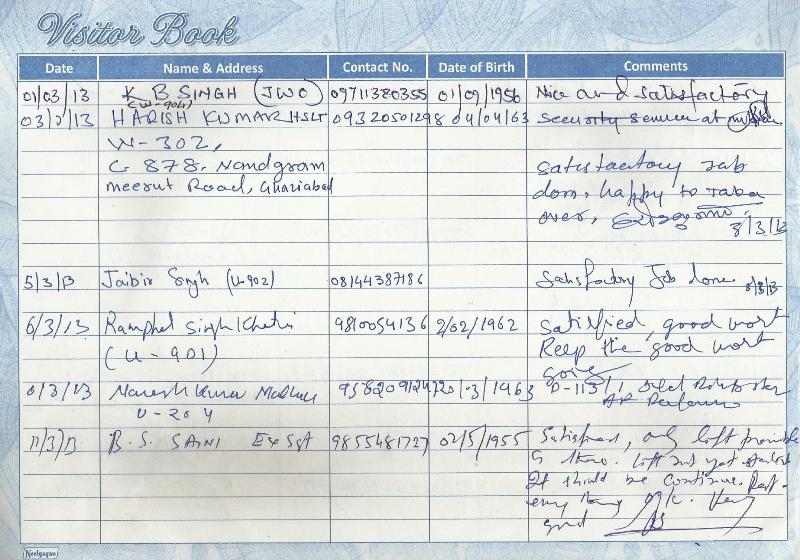 Visitor Book
Date Name & Address Contact No. Date of Birth Comments
01/03/13 K B SINGH (JWO) 09711380355 01/09/1956 Nice and satisfactory
(W-904)
03/3/13 HARISH KUMAR HSLT 09320501298 04/04/63 security service at
W-302,
C-878, Nandgram satisfactory Jab
Meerut Road, Ghaziabad done, happy to take
over,
8/3/13
5/3/13 Jaibir Singh (U-902) 08144387186 Satisfactory Job done
6/3/13 Ramphal Singh Khatri 9810054136 2/02/1962 Satisfied, good work
(U-901) Keep the good work
going
Naresh Kumar 20/3/1963 D-113/1
U-204
11/3/13 B.S. SAINI Ex Sgt 9855481727 02/5/1955 Satisfied, only lift
is there. lift not yet started
It should be continue. Rest
every thing O.K. Very
good
Neelgagan